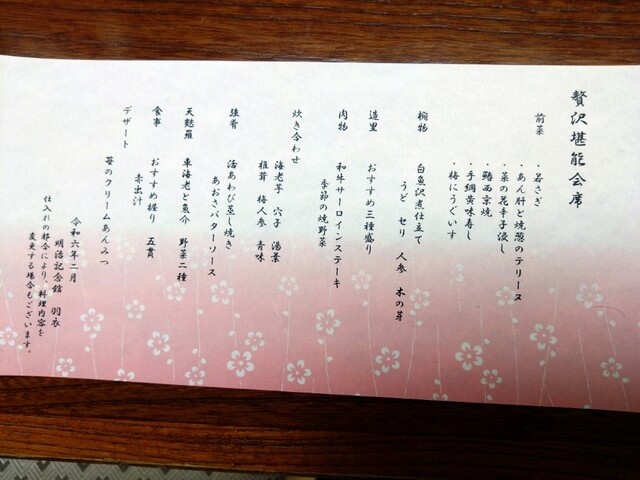 贅沢堪能会席
前菜
・若さぎ
・あん肝と焼葱のテリーヌ
・菜の花辛子浸し
・鰆西京焼
・手綱黄味寿し
・梅にうぐいす
椀物 白魚沢煮仕立て
うど セリ 人参 木の芽
造里 おすすめ三種盛り
肉物 和牛サーロインステーキ
季節の焼野菜
炊き合わせ
海老芋 穴子 湯葉
椎茸 梅人参 青味
強肴 活あわび蒸し焼き
あおさバターソース
天麩羅 車海老と魚介 野菜二種
食事 おすすめ握り 五貫
赤出汁
デザート
苺のクリームあんみつ
令和六年二月
明治記念館 羽衣
仕入れの都合により、料理内容を
変更する場合もございます。